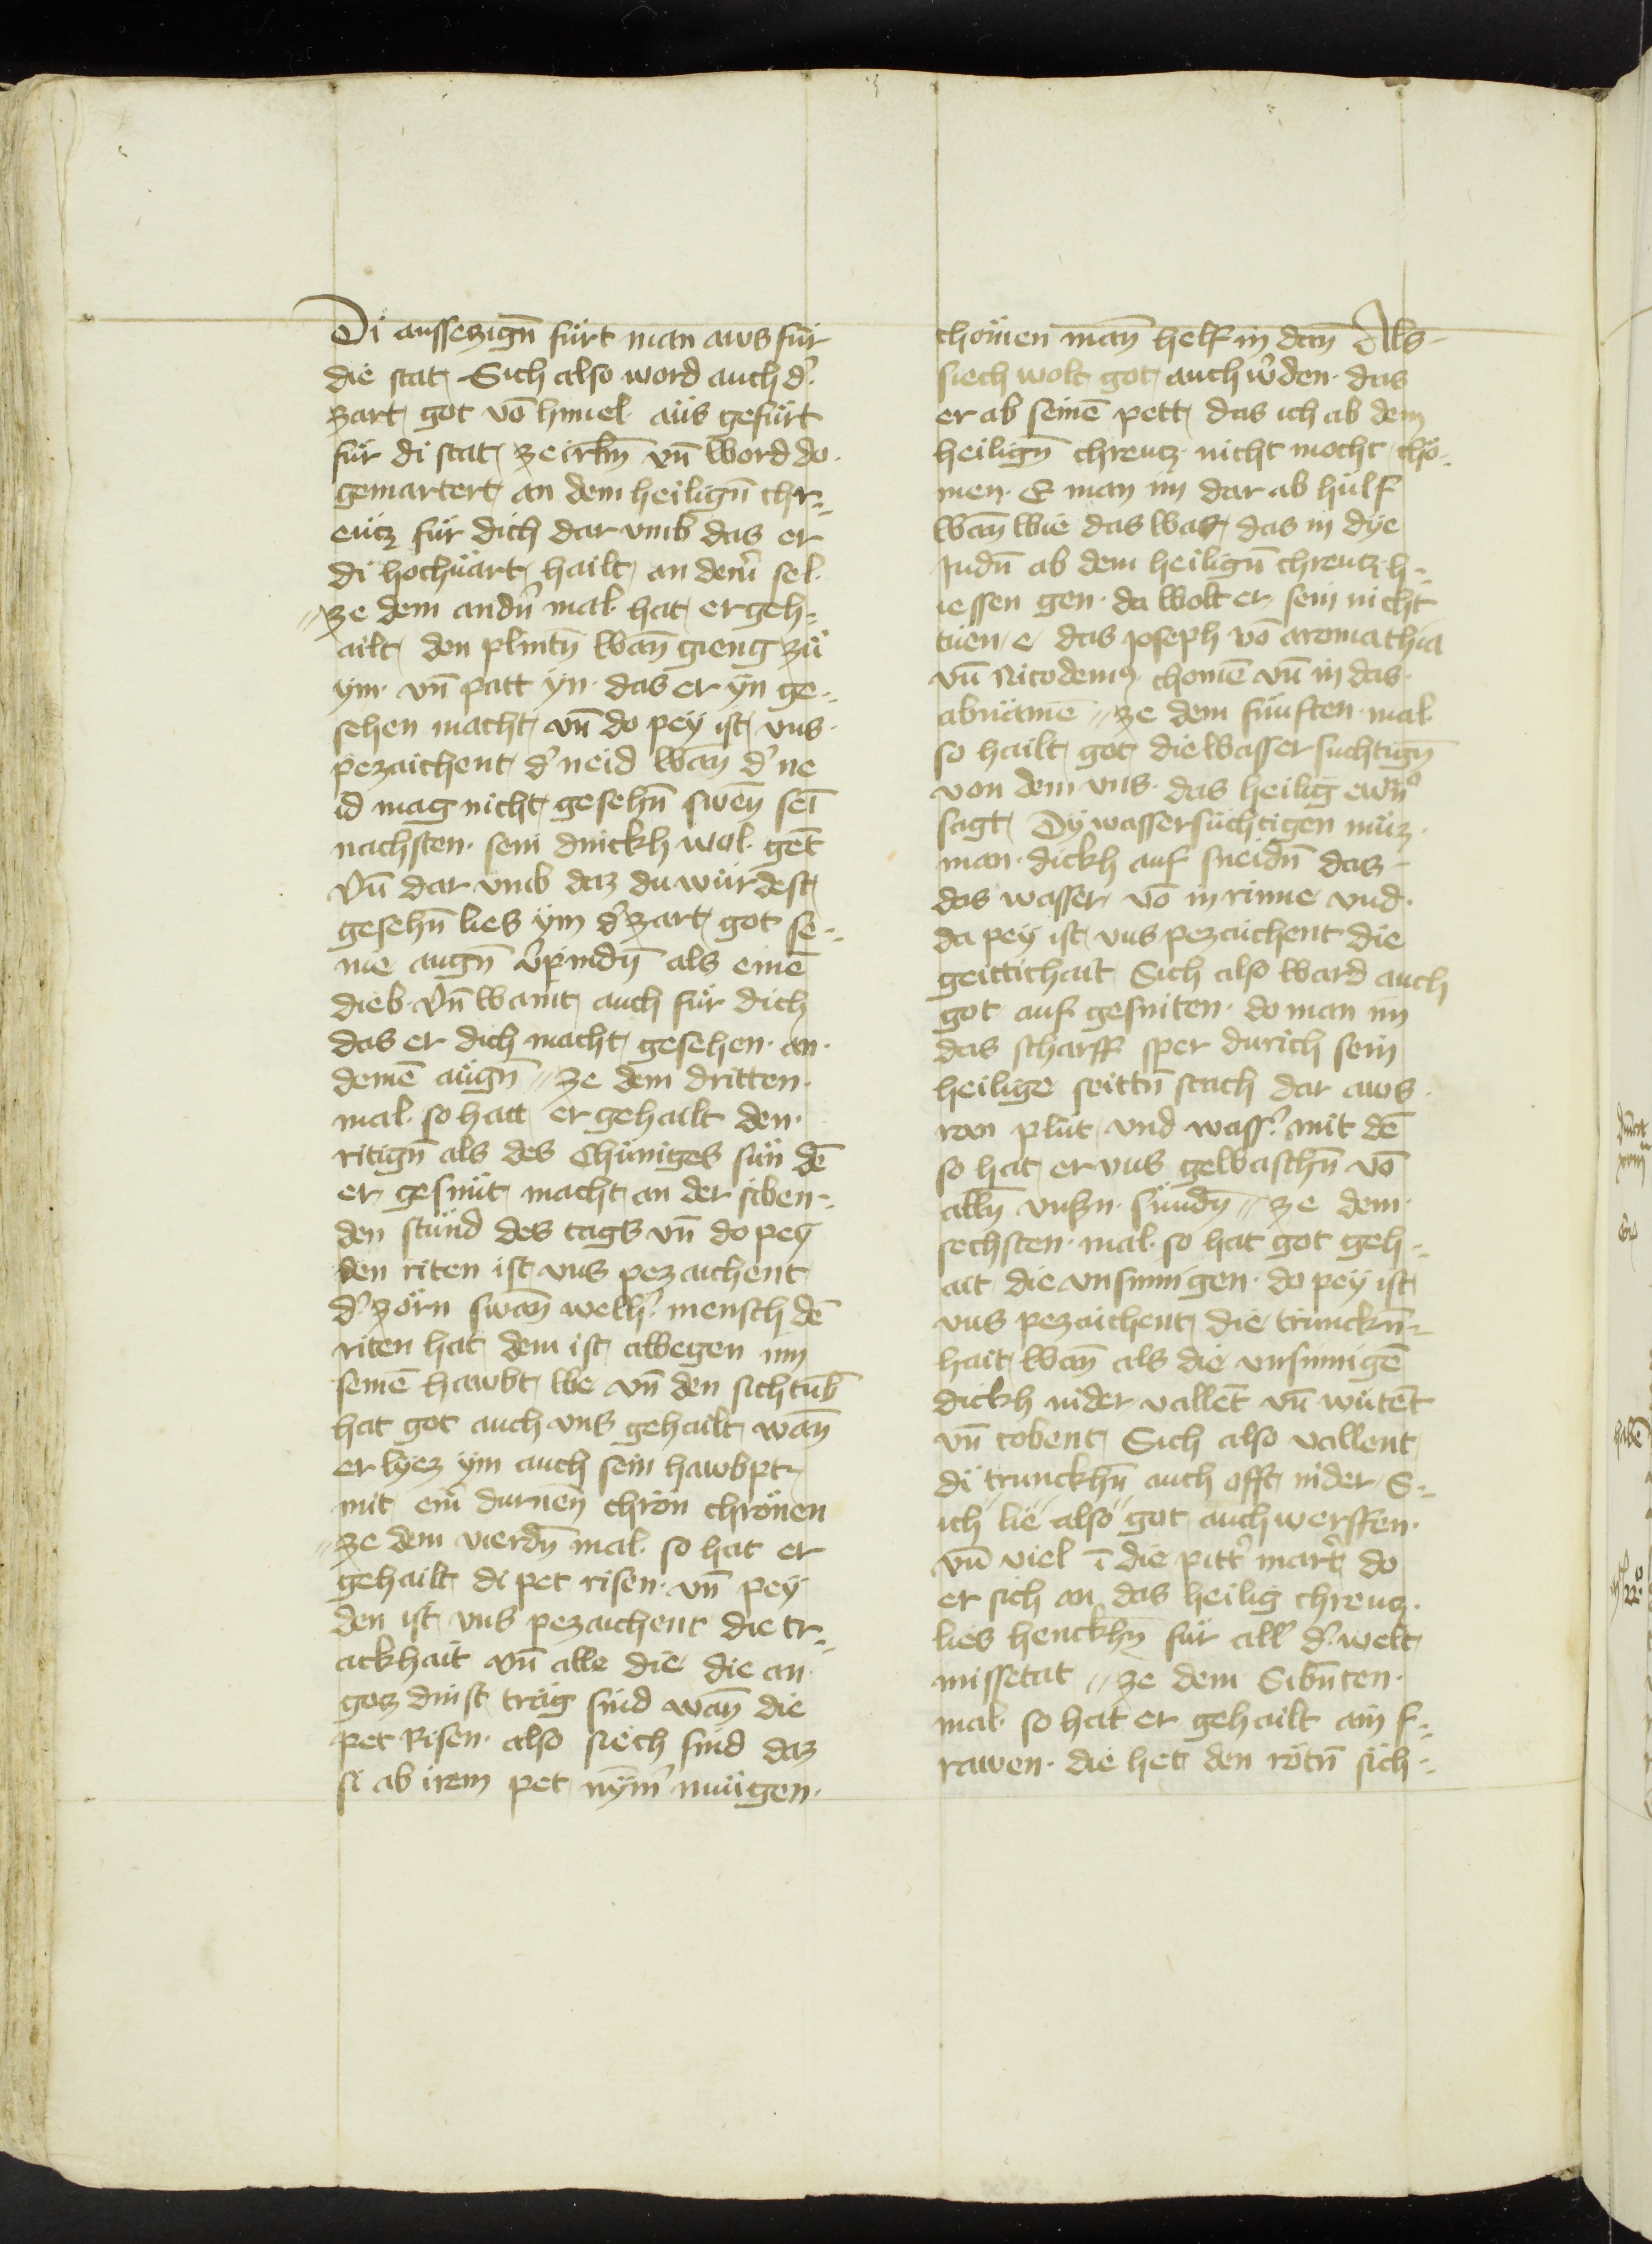 Di aussezign̄ fürt man aws für
die stat Sich also word auch d'
zart got vō himel aüs gefürt
für di stat ze irl̄m vn̄ word do
gemartert an dem heilign̄ chr=
eütz für dich dar vmb das er
di hochuart hailt an dein̄' sel
ze dem andn̄' mal hat er geh=
ailt den plintn̄ wan̄ gieng zü
ym vn̄ patt yn das er yn ge=
sehen macht vn̄ do pey ist vns
pezaichent d' neid wan̄ d' ne
id mag nicht gesehn̄ swen̄ sei
nachsten sein dinckh wol gēt
Vn̄ dar vmb daz du würdest
gesehn̄ lies ym d' zart got se=
ine augn̄ v'pindn̄ als einē
dieb Vn̄ waint auch für dich
das er dich macht gesehen an
deinē aügn̄ ze dem dritten
mal so hat er gehailt den
ritign̄ als des chüniges sün dē
er gesünt macht an der siben=
den stünd des tags vn̄ do pey
den riten ist vns pezaichent
d' zörn swan̄ welh' mensch dē
riten hat dem ist albegen im
seinē hawbt we vn̄ den sichtūb
hat got auch vns gehailt wan̄
er lyez ym auch sein hawbpt
mit ein̄' durnen̄ chron chrönen
ze dem vierdn̄ mal so hat er
gehailt di pet risen vn̄ pey
den ist vns pezaichent die tr=
ackhait vn̄ alle die die an
gotz dinst träg sind wan̄ die
pet Risen also siech sind daz
si ab irem pet nȳm' mügen
chömen man̄ helf in dan̄ Als
siech wolt got auch w'den das
er ab seinē pett das ich ab dem
heilign̄ chreutz nicht mocht chö=
men E man im dar ab hülf
wan̄ wie das was das in dye
Judn̄ ab dem heilign̄ chreutz h=
iessen gen da wolt er sein nicht
tuen e das Joseph vō aromathia
vn̄ Nicodem9 chomē vn̄ in das
abnämē ze dem fünften mal
so hailt got die wasser suchtign̄
von dem vns das heilig ewn̄o
sagt Dy wassersüchtigen müz
man dickh auf sneidn̄ das
das wasser vō in rinne vnd
da pey ist vns pezaichent die
geittichait Sich also ward auch
got auf gesniten do man im
das scharff sper durich sein
heilige seittn̄ stach dar aws
ran plüt vnd wass' mit dē
so hat er vns gewaschn̄ vō
alln̄ vnßn sündn̄ ze dem
sechsten mal so hat got geh=
ait die vnsinnigen do pey ist
vns pezaichent die trünckn̄=
hait wan̄ als die vnsinnigē
dickh nider vallēt vn̄ wütēt
vn̄ tobent Sich also vallent
di trunckhn̄ auch offt nider S=
ich lie also got auch werffen
vn̄ viel ī die pitt' mart' do
er sich an das heilig chreuz
lies henckhn̄ für all d' welt
missetat ze dem Sibn̄ten
mal so hat er gehailt ain f=
rawen die het den rötn̄ sich=